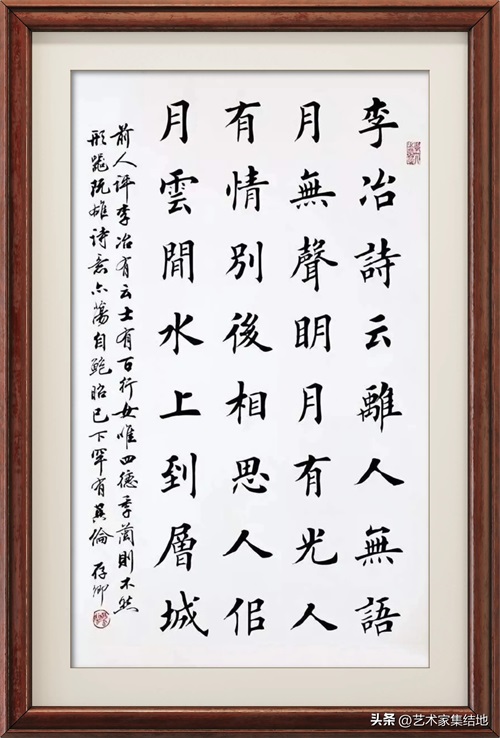 李冶詩云離人無語
月無聲眀月有光人
有情別後相思人佀
月雲閒水上到層城
前人评李冶有云士有百行女唯四德季蘭則不然
形氣既雄詩意亦蕩自鮑昭已下罕有其倫 存卿
头条 @艺术家集结地